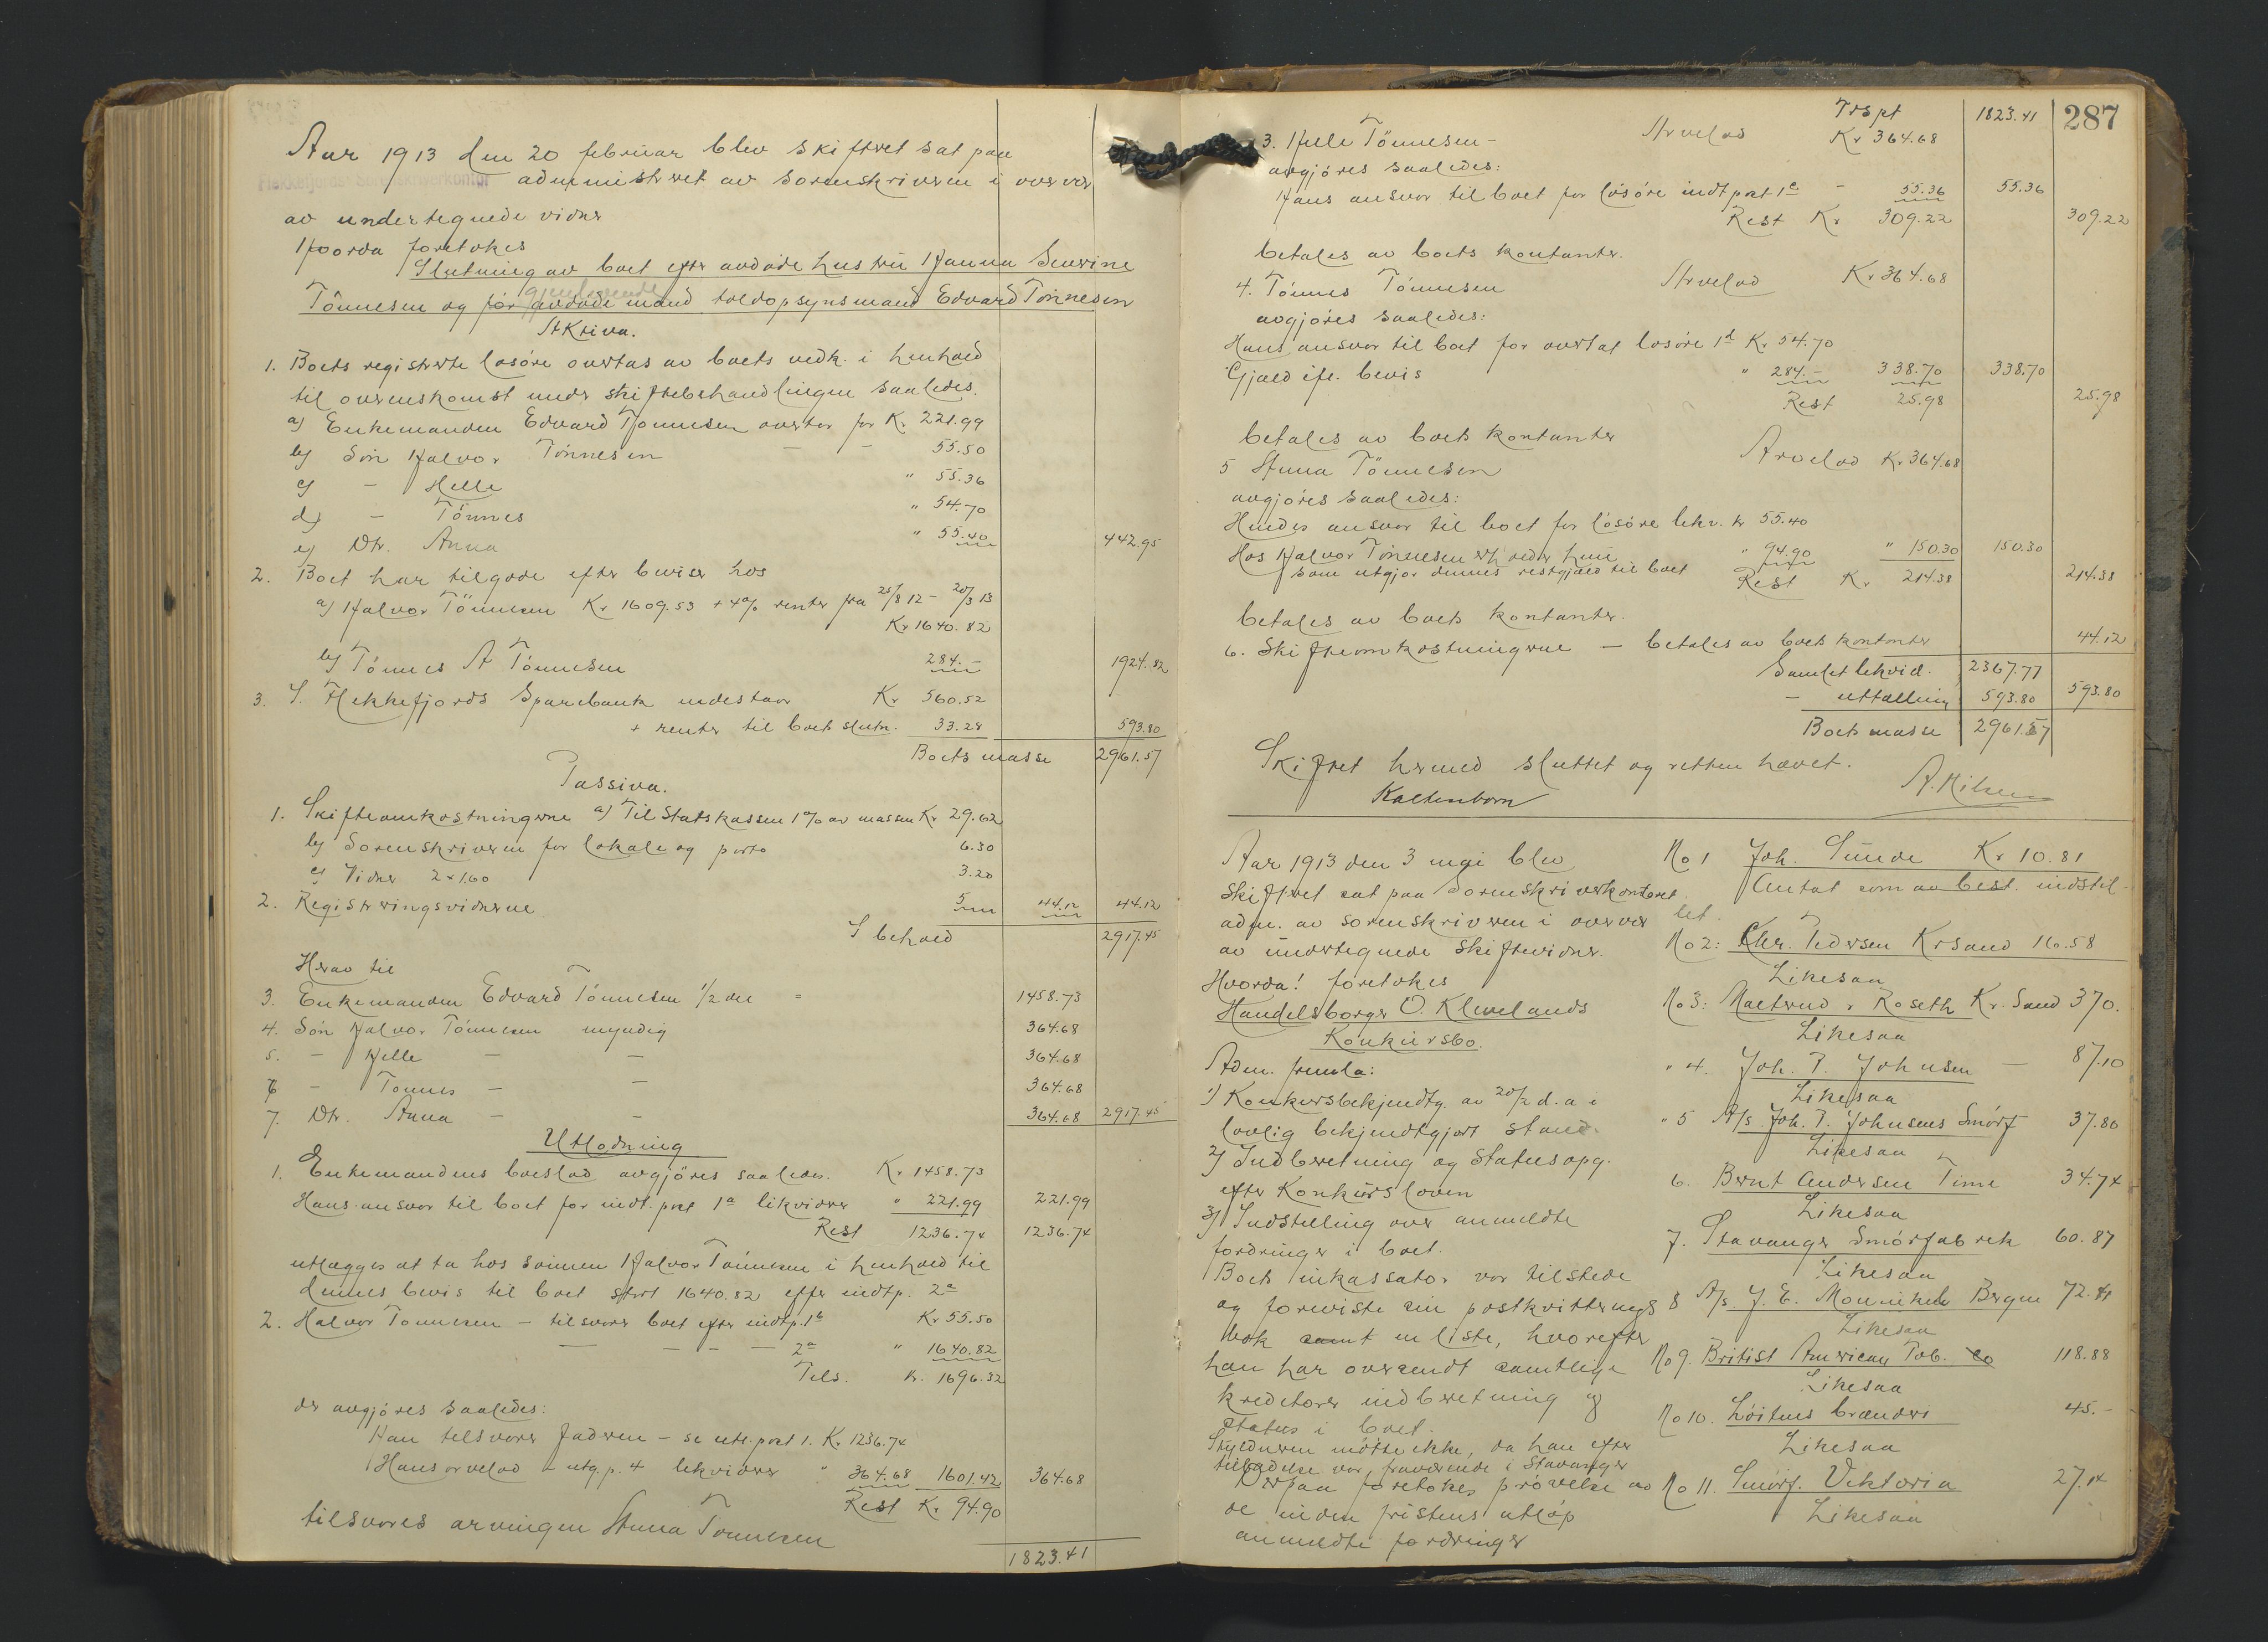 Aar 1913 den 20 februar blev skiftet sat paa
Flekkefjords Sorenskriverkontor administreret av sorenskriveren i overvær
av undertegnede vidner
Hvorda foretokes
Slutning av boet efter avdøde hustru Hanna Severine
Tönnesen og før gjenlevende avdøde mand toldopsynsmand Edvard Tönnesen
Aktiva.
1. Boets registrerte løsøre overtas av boets vedk. i henhold
til overenskomst under skiftebehandlingen saaledes.
a) Enkemanden Edvard Tönnesen overtar for Kr. 221.99
b) Søn Halvor Tönnesen - - 55.50
c) - Helle " 55.36
d) - Tönnes " 54.70
e) Dtr. Anna " 55.40 442.95
2. Boet har tilgode efter beviser hos
a) Halvor Tönnesen Kr 1609.53 + 4% renter fra 25/8 12 - 20/3 13
Kr 1640.82
b) Tönnes A Tönnesen 284.- 1924.82
3. I Flekkefjords Sparebank indestaar Kr 560.52
+ renter til boets slutn. 33.28 593.80
Boets masse 2961.57
Passiva.
1. Skifteomkostningerne a) Til Statskassen 1% av massen Kr 29.62
b) Sorenskriveren for lokale og porto 6.30
c) Vidner 2 x 1.60 3.20
2. Registreringsvidnerne 5 44.12 44.12
I behold 2917.45
Herav til
3. Enkemanden Edvard Tönnesen 1/2 del = 1458.73
4. Søn Halvor Tönnesen myndig 364.68
5. - Helle - - 364.68
6 - Tönnes - - 364.68
7. Dtr. Anna - - 364.68 2917.45
Utlodning
1. Enkemandens boeslod avgjøres saaledes. Kr 1458.73
Hans ansvar til boet for indt. post 1a likvideres " 221.99 221.99
Rest 1236.74 1236.74
utlægges at ta hos sönnen Halvor Tönnesen i henhold til
dennes bevis til boet stort 1640.82 efter indtp. 2a
2. Halvor Tönnesen - tilsvarer boet efter indtp. 1b Kr 55.50
- - - - 2a " 1640.82
Tils. Kr. 1696.32
der avgjøres saaledes:
Han tilsvarer faderen - se utl. post 1. Kr 1236.74
Hans arvelod - utg. p. 4 likvideres " 364.68 1601.42 364.68
Rest Kr. 94.90
tilsvares arvingen Anna Tönnesen
1823.41
287
Trspt 1823.41
3. Helle Tönnesen - Arvelod Kr 364.68
avgjøres saaledes:
Hans ansvar til boet for løsøre indt post 1c - 55.36 55.36
Rest Kr 309.22 309.22
betales av boets kontanter.
4. Tönnes Tönnesen Arvelod Kr 364.68
avgjøres saaledes:
Hans ansvar til boet for overtat løsøre 1d Kr 54.70
Gjæld ifl. bevis " 284.- 338.70 338.70
Rest 25.98 25.98
betales av boets kontanter
5 Anna Tönnesen Arvelod Kr 364.68
avgjøres saaledes:
Hendes ansvar til boet for løsøre likv. kr 55.40
Hos Halvor Tönnesen erholder hun
som utgjør dennes restgjæld til boet " 94.90 " 150.30 150.30
Rest Kr 214.38 214.38
betales av boets kontanter.
6. Skifteomkostningerne - betales av boets kontanter 44.12
Samlet likvid. 2367.77
- uttælling 593.80 593.80
Boets masse 2961.57
Skiftet hermed sluttet og retten hævet.
Kaltenborn A. Nilsen
Aar 1913 den 3 mai blev
skiftret sat paa Sorenskriverkontoret
adm. av sorenskriveren i overvær
av undertegnede skiftevidner.
Hvorda! foretokes
Handelsborger O. Klevelands
Konkursbo.
Adm. fremla:
1) Konkursbekjendtg. av 20/2 d. a i
lovlig bekjendtgjort stand.
2) Indberetning og Statusopg.
efter Konkursloven
3) Indstilling over anmeldte
fordringer i boet.
Boets inkassator var tilstede
og foreviste sin postkvitterings
bok samt en liste, hvorefter
han har oversendt samtlige
kreditorer indberetning og
status i boet.
Skyldneren møtte ikke, da han efter
tilladelse var fraværende i Stavanger
Derpaa foretokes prøvelse av
de inden fristens utløp
anmeldte fordringer
No 1 Joh. Sunde Kr 10.81
Antat som av best. indstil-
let.
No 2: Chr. Pedersen Krsand 16.58
Likesaa
No 3: Roseth Kr. Sand 370.
Likesaa
" 4. Joh. P. Johnsen - 87.10
Likesaa
" 5 A/s. Joh. P. Johnsens Smørf 37.80
Likesaa
6. Bernt Andersen Time 34.74
Likesaa
7. Stavanger Smørfabrik 60.87
Likesaa
8 A/s. J. E. Monnikel Bergen 72.81
Likesaa
No 9. Britist American Tob. Co 118.88
Likesaa
No 10. Löitens Brænderi 45.-
Likesaa
No 11. Smørf. Viktoria 27.14
Likesaa